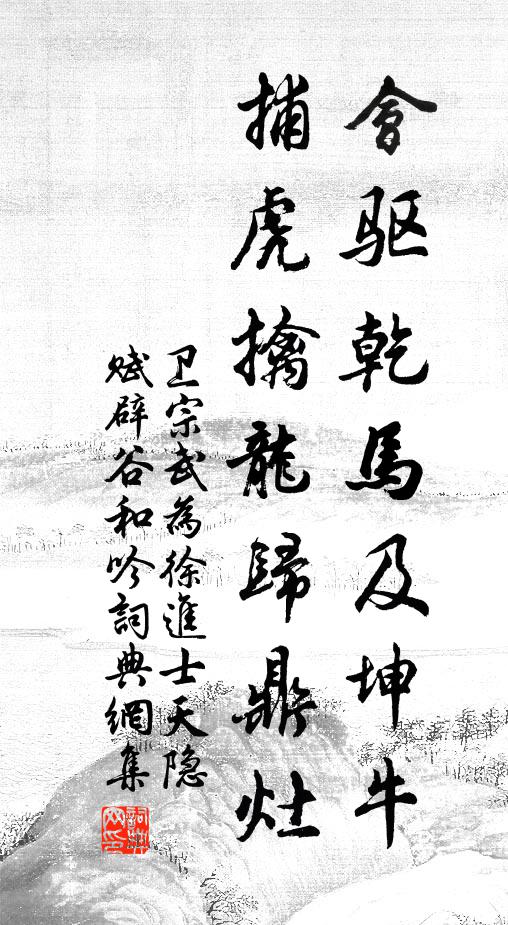 會驱乾馬及坤牛
捕虎擒龍歸鼎灶
卫宗武為徐進士天隐
赋辟谷和吟詞典網集